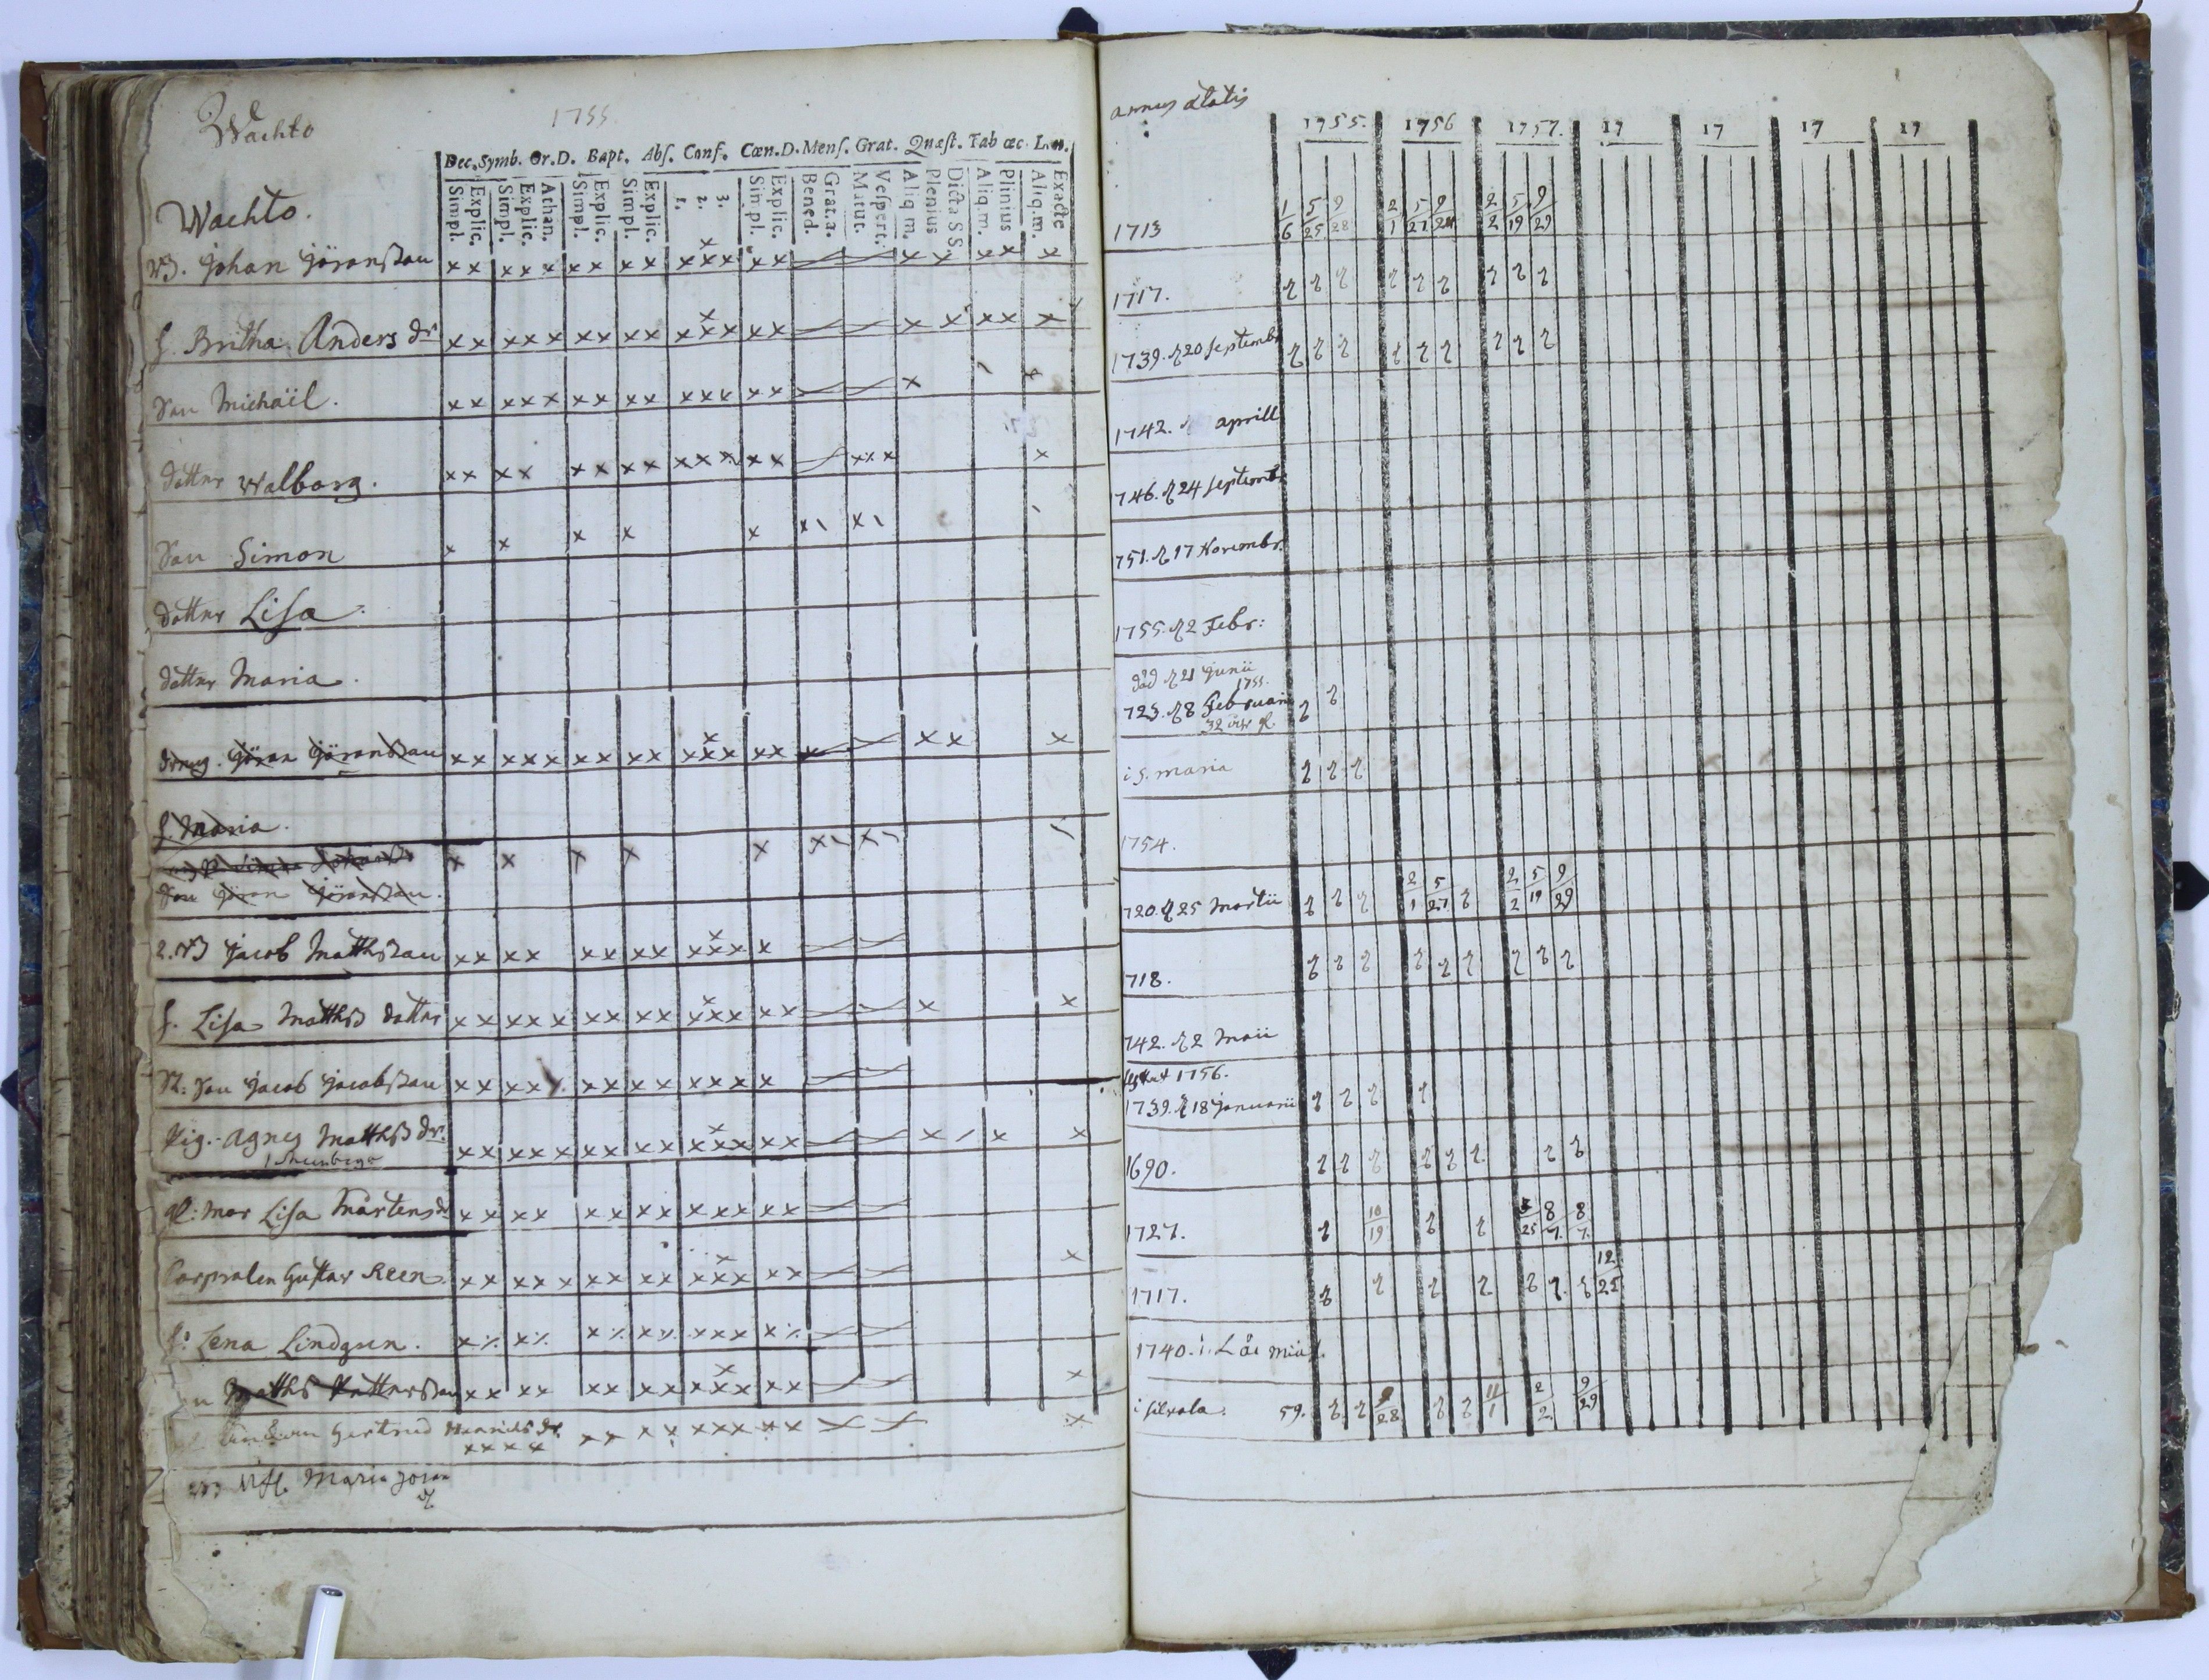 Wachto
1755
Wachto.
Dec. Symb. Or.D. Bapt. Abs. Conf. Cœn.D. Mens. Grat. Quæst. Tab œc L.n.
Simpl. Explic. Simpl. Explic. Athan. Simpl. Explic. Simpl. Explic. 1. 2. 3. Simpl. Explic. Bened. Grat.a. Matut. Vespert. Aliq m. Plenius Dicta S S. Aliq.m. Plinius Aliq.m. Exacte
Johan Jöransson
h. Britha Anders dr
Son Michaël.
dotter Walborg.
Son Simon
dotter Lisa
dotter Maria.
dreng. Jöran Jöransson
h. Maria.
Son Jöran Jöransson.
2. Jacob Matthsson
h. Lisa Matths dotter
Son Jacob Jacobsson
Pig. Agnes Matths dr.
gl: mor Lisa Mårtens dr
Corpralen Gustav Reen
h: Lena Lindgren.
Matths
Gertrud Henrichs dr.
Maria
annus ætatis
1755. 1756 1757. 17 17 17 17
1713 1/6 5/25 9/28 2/1 5/27 9/24 2/2 5/19 9/29
1717.
1739. d 20 Septembr
1742. aprill
746. d 24 Septemb
751. d 17 Novembr.
1755. d 2 Febr:
död d 21 Junii
1755.
723. d 8 Februarii
32 åhr gl.
i S. maria
1754.
720. d 25 Martii 2/1 5/27 2/2 5/19 9/29
718.
742. d 2 Maii
1756.
1739. d 18 Januarii
1690.
1727. 10/19 5/25 8/7 8/7
1717. 12/25
1740. i. Låi
i silvola. 59. 9/28 11/1 2/2 9/29